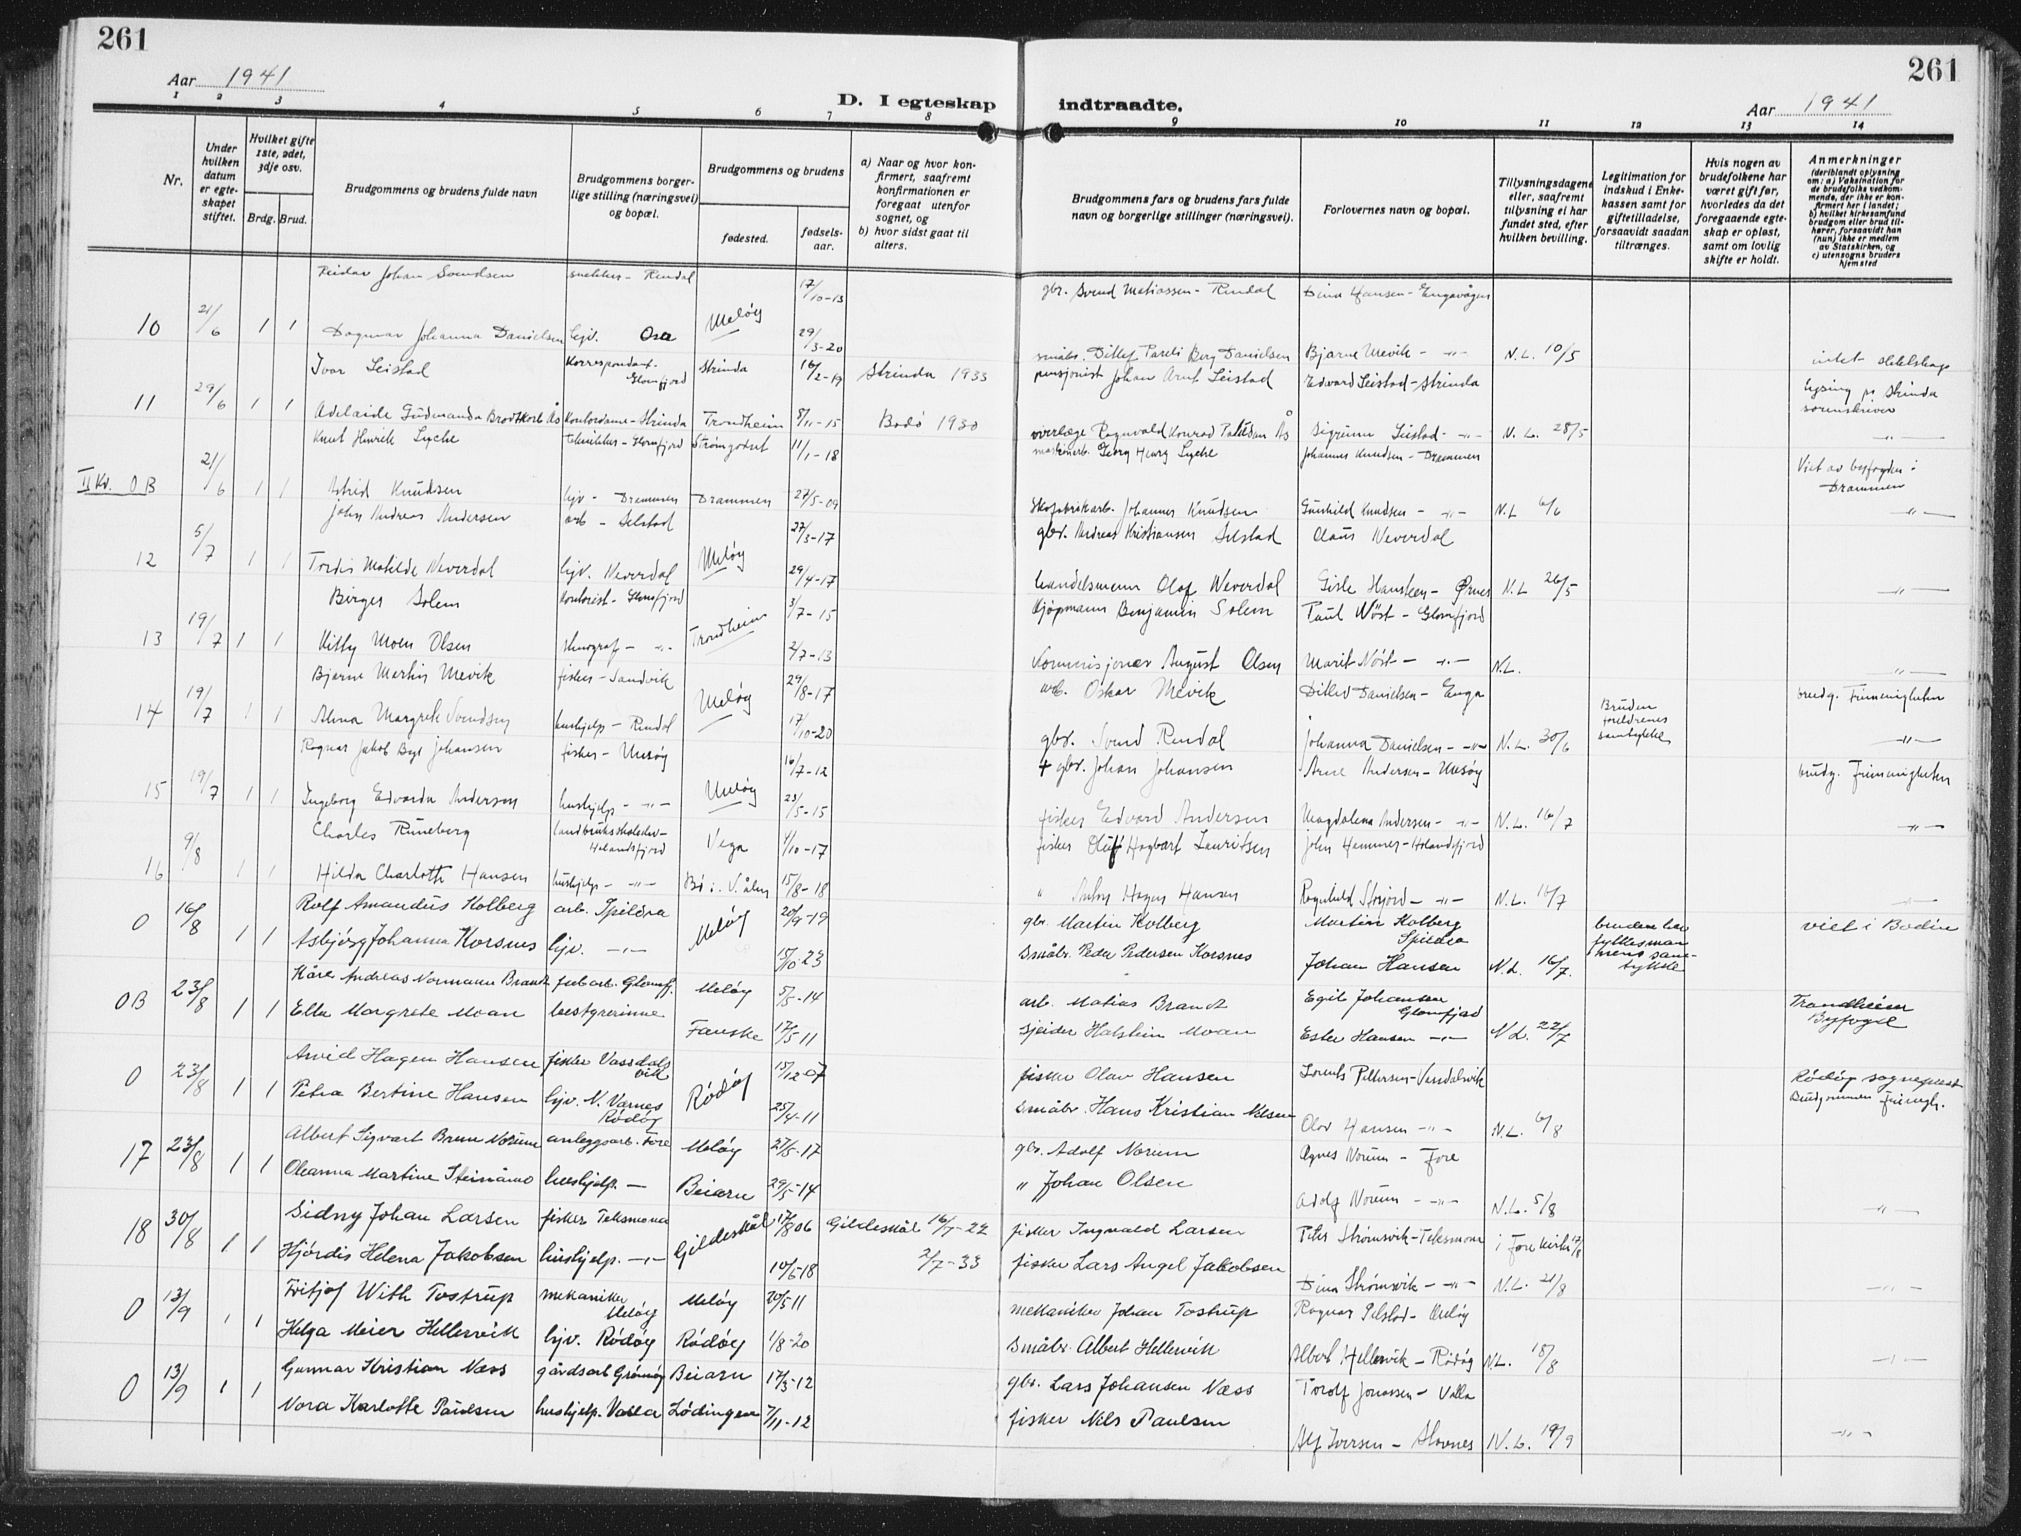 261
261
Aar 1941
D. I egteskap indtraadte.
Aar 1941
1 2 3 4 5 6 7 8 9 10 11 12 13 14
Nr.
Under hvilken datum er egteskapet stiftet.
Hvilket gifte 1ste, 2det, 3dje osv.
Brdg. Brud.
Brudgommens og brudens fulde navn
Brudgommens borgerlige stilling (næringsvei) og bopæl.
Brudgommens og brudens
fødested.
fødselsaar.
a) Naar og hvor konfirmert, saafremt konfirmationen er foregaat utenfor sognet, og
b) hvor sidst gaat til alters.
Brudgommens fars og brudens fars fulde navn og borgerlige stillinger (næringsvei).
Forlovernes navn og bopæl.
Tillysningsdagene eller, saafremt tillysning ei har fundet sted, efter hvilken bevilling.
Legitimation for indskud i Enkekassen samt for giftetilladelse, forsaavidt saadan tiltrænges.
Hvis nogen av brudefolkene har været gift før, hvorledes da det foregaaende egteskap er opløst, samt om lovlig skifte er holdt.
Anmerkninger (deriblandt oplysning om: a) Vaksination for de brudefolks vedkommende, der ikke er konfirmert her i landet; b) hvilket kirkesamfund brudgom eller brud tilhører, forsaavidt han (hun) ikke er medlem av Statskirken, og c) utensogns bruders hjemsted
Reidar Johan Svendsen snekker - Rendal 17/10-13 gbr. Svend Matiassen - Rendal Dina Hansen - Engavågen
10 21/6 1 1 Dagmar Johanna Danielsen hjv. Osa Meløy 29/3-20 småbr. Ditlef Pareli Berg Danielsen Bjarne Mevik - -"- N.L. 10/5 intet slektskap
Ivar Leistad Korrespondent - Glomfjord Strinda 16/2-19 Strinda 1933 pensjonist Johan Arnt Leistad Edvard Leistad - Strinda Lysing på Strinda sorenskriver
11 29/6 1 1 Adelaide Gudmunda Brodtkorb Ås Kontordame - Strinda Trondheim 8/11-15 Bodø 1930 overlege Ragnvald Konrad Paulsen Ås Sigrunn Leistad - -"- N.L. 28/5 -"-
Knut Henrik Lyche tekniker - Glomfjord Strømgodset 11/1-18 maskinarb. Georg Henry Lyche Johannes Knudsen - Drammen Viet av byfogden i Drammen
II Kv. OB 21/6 1 1 Astrid Knudsen hjv - Drammen Drammen 27/5-09 Skofabrikarb. Johannes Knudsen Gunhild Knudsen - -"- N.L 6/6 -"-
John Andreas Andersen arb - Selstad 27/3-17 gbr. Andreas Kristiansen Selstad Claus Neverdal
12 5/7 1 1 Tordis Matilde Neverdal hjv. Neverdal Meløy 29/4-17 handelsmann Olaf Neverdal Gisle Hansteen - Ørnes N.L 26/5 -"-
Birger Solem kontorist - Glomfjord 3/7-15 Kjøpmann Benjamin Solem Paul Nøst - Glomfjord
13 19/7 1 1 Kitty Moen Olsen stenograf - -"- Trondheim 2/7-13 Kommisjonær August Olsen Marit Nøst - -"- N.L. -"-
Bjarne Martin Mevik fisker - Sandvik 29/8-17 arb. Oskar Mevik Ditlev Danielsen - Enga brudg. Frimenigheten
14 19/7 1 1 Alma Margrete Svendsen hushjelp - Rendal Meløy 17/10-20 gbr. Svend Rendal Johanna Danielsen - -"- N.L. 30/6 Bruden foreldrenes samtykke -"-
Ragnar Jakob Johansen fisker - Mesøy 16/7-12 + gbr. Johan Johansen Arne Andersen - Mesøy brudg. Frimenigheten
15 19/7 1 1 Ingeborg Edvarda Andersen hushjelp - -"- Meløy 23/5-15 fisker Edvard Andersen Magdalena Andersen - -"- N.L. 16/7 -"-
Charles Runeberg landbrukskoleelev - Holandsfjord Vega 4/10-17 fisker Oluf Hagbart Lauritsen John Hammer - Holandsfjord
16 9/8 1 1 Hilda Charlotte Hansen hushjelp - -"- Bø i V.ålen 15/8-18 " Anton Hagen Hansen Ragnhild Storjord - -"- N.L. 18/7 -"-
Rolf Amandus Kolberg arb. Spildra 20/9-19 gbr. Martin Kolberg Martin Kolberg Spildra bruden har fylkesmannens samtykke viet i Bodin
0 16/8 1 1 Asbjørg Johanna Korsnes hjv. -"- Meløy 15/10-23 Småbr. Peder Pedersen Korsnes Johan Hansen N.L. 16/7.
Kåre Andreas Normann Brandt fabarb. Glomfj. Meløy 5/5-14 arb. Matias Brandt Egil Johansen Glomfjord Trondheim Byfogd
OB 23/8 1 1 Ella Margrete Moan bestyrerinne Fauske 17/5 11 Halstein Moan Ester Hansen -"- N.L. 22/7
Arvid Hagen Hansen fisker Vassdalsvik 15/12 07 fisker Olav Hansen Lorents Pettersen - Vassdalsvik Rødøy sogneprest Brudgommen Frimegh.
0 23/8 1 1 Petra Bertine Hansen hjv. N. Værnes Rødøy Rødøy 25/4-11 Småbr. Hans Kristian Nilsen Olav Hansen -"- N.L. 6/8
Albert Sigvart Brun Norum anleggsarb. Fore Meløy 27/5-17 gbr. Adolf Norum Agnes Norum - Fore
17 23/8 1 1 Oleanna Martine Steinåmo hushjelp. — Beiarn 29/5-14 " Johan Olsen Adolf Norum - -"- N.L. 5/8 -"-
Sidny Johan Larsen fisker Teksmona 17/8 06 Gildeskål 16/7-22 fisker Ingvald Larsen Peter Strømsvik - Teksmona i Fore kirke 17/8
18 30/8 1 1 Hjørdis Helena Jakobsen hushjelp. -"- Gildeskål 10/6-18 2/7-33 fisker Lars Angel Jakobsen Dina Strømsvik - -"- N.L. 21/8 -"-
Fritjof With Tostrup mekaniker Meløy Meløy 20/5 11 mekaniker Johan Tostrup Ragnar Selstad - Meløy
0 13/9 1 1 Helga Meier Hellervik hjv. Rødøy Rødøy 1/8-20 Småbr. Albert Hellervik Albert Hellervik - Rødøy N.L. 18/8 -"-
Gunnar Kristian Næss gårdsarb Grønøy Beiarn 17/3-12 gbr. Lars Johansen Næss Torolf Jonassen - Valla
0 13/9 1 1 Nora Karlotte Paulsen hushjelp. Valla Lødingen 7/11-12 fisker Nils Paulsen Alf Iversen - Stornes N.L. 19/9 -"-